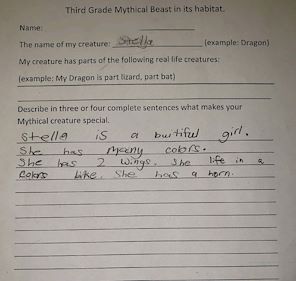 Third Grade Mythical Beast in its habitat.
Name:
The name of my creature: Stella (example: Dragon)
My creature has parts of the following real life creatures:
(example: My Dragon is part lizard, part bat)
Describe in three or four complete sentences what makes your
Mythical creature special.
Stella is a buitiful girl.
She has meeny colors.
She has 2 wings. She life in a
Colors Lake. She has a horn.